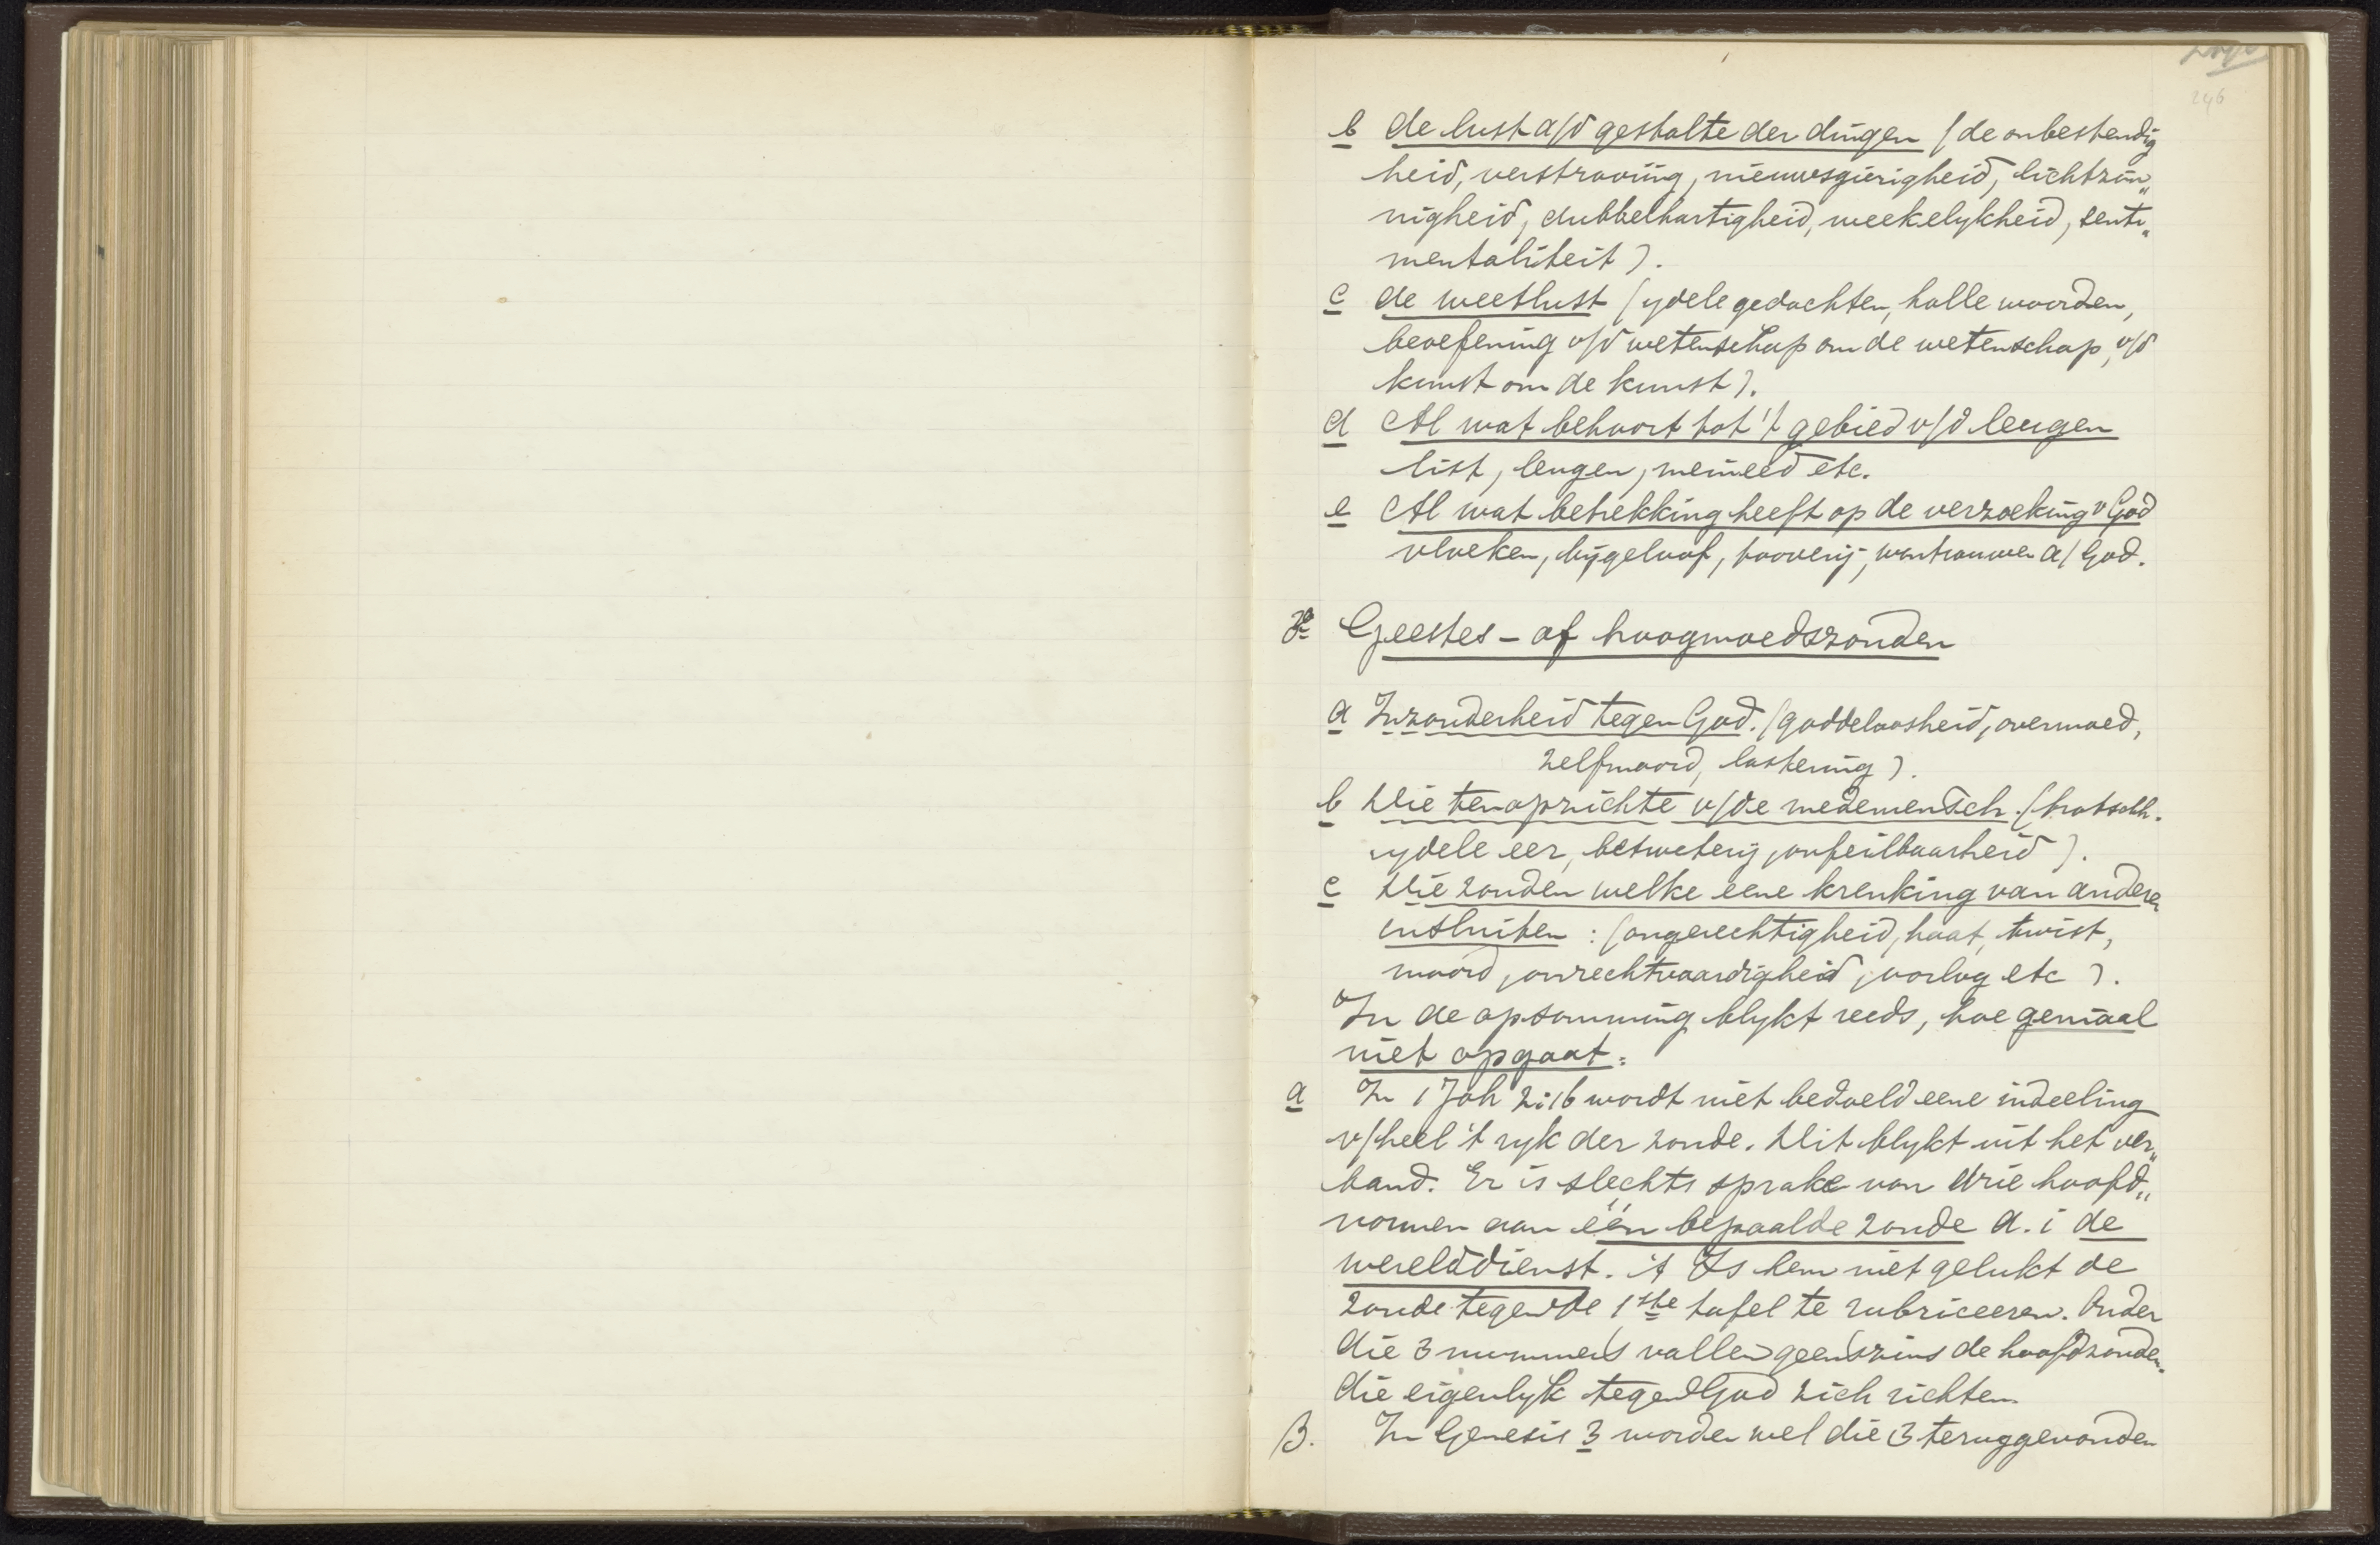 246
b de lust a/d gestalte der dingen (de onbestendig
heid, verstrooiïng, nieuwsgierigheid, lichtzin„
nigheid, dubbelhartigheid, weekelykheid, senti„
mentaliteit).
c de weetlust (ydele gedachten, holle woorden,
beoefening v/d wetenschap om de wetenschap, v/d
kunst om de kunst).
d Al wat behoort tot 't gebied v/d leugen
list, leugen, meineed etc.
e Al wat betrekking heeft op de verzoeking v God
vloeken, bijgeloof, tooverij, wantrouwen a/ God.
Geestes - of hoogmoedszonden
a Inzonderheid tegen God. (goddeloosheid, overmoed,
zelfmoord, lastering).
b Die ten opzichte v/de medemensch. (trotschh.
ydele eer, betweterij, onfeilbaarheid).
c Die zonden welke eene krenking van anderen
insluiten : (ongerechtigheid, haat, twist,
moord, onrechtvaardigheid, oorlog etc).
In de opsomming blykt reeds, hoe geniaal
niet opgaat.
a In 1 Joh 2:16 wordt niet bedoeld eene indeeling
v/heel 't ryk der zonde. Dit blykt uit het ver„
band. Er is slechts sprake van drie hoofd„
vormen aan één bepaalde zonde d.i de
werelddienst. 't Is hem niet gelukt de
zonde tegen de 1ste tafel te rubriceeren. Onder
die 3 nummers vallen geenszins de hoofdzonden
die eigenlyk tegen God zich richten.
B. In Genesis 3 worden wel die 3 teruggevonden